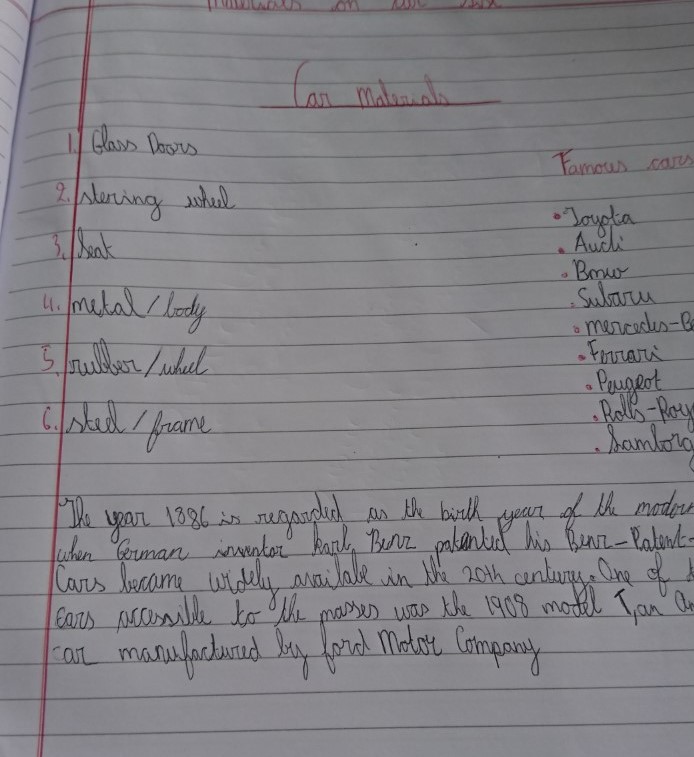 Materials on
Car Materials
1. Glass Doors
2. stering wheel
3. Seat
4. metal/body
5. rubber/wheel
6. steel/frame
Famous cars
• Toyota
• Audi
• Bmw
• Subaru
• mercedes-Be
• Ferrari
• Peugeot
• Rolls-Roy
• Lamborg
The year 1886 is regarded as the birth year of the modern
when German inventor Karl Benz patented his Benz-Patent-
Cars became widely availabe in the 20th century. One of
cars accessible to the masses was the 1908 model T, an
car manufactured by ford Motor Company